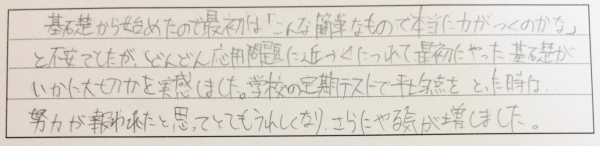 基礎から始めたので最初は「こんな簡単なもので本当に力がつくのかな」
と不安でしたが、どんどん応用問題に近づくにつれて最初にやった基礎が
いかに大切かを実感しました。学校の定期テストで平均点をとった時は、
努力が報われたと思ってとてもうれしくなり、さらにやる気が増しました。